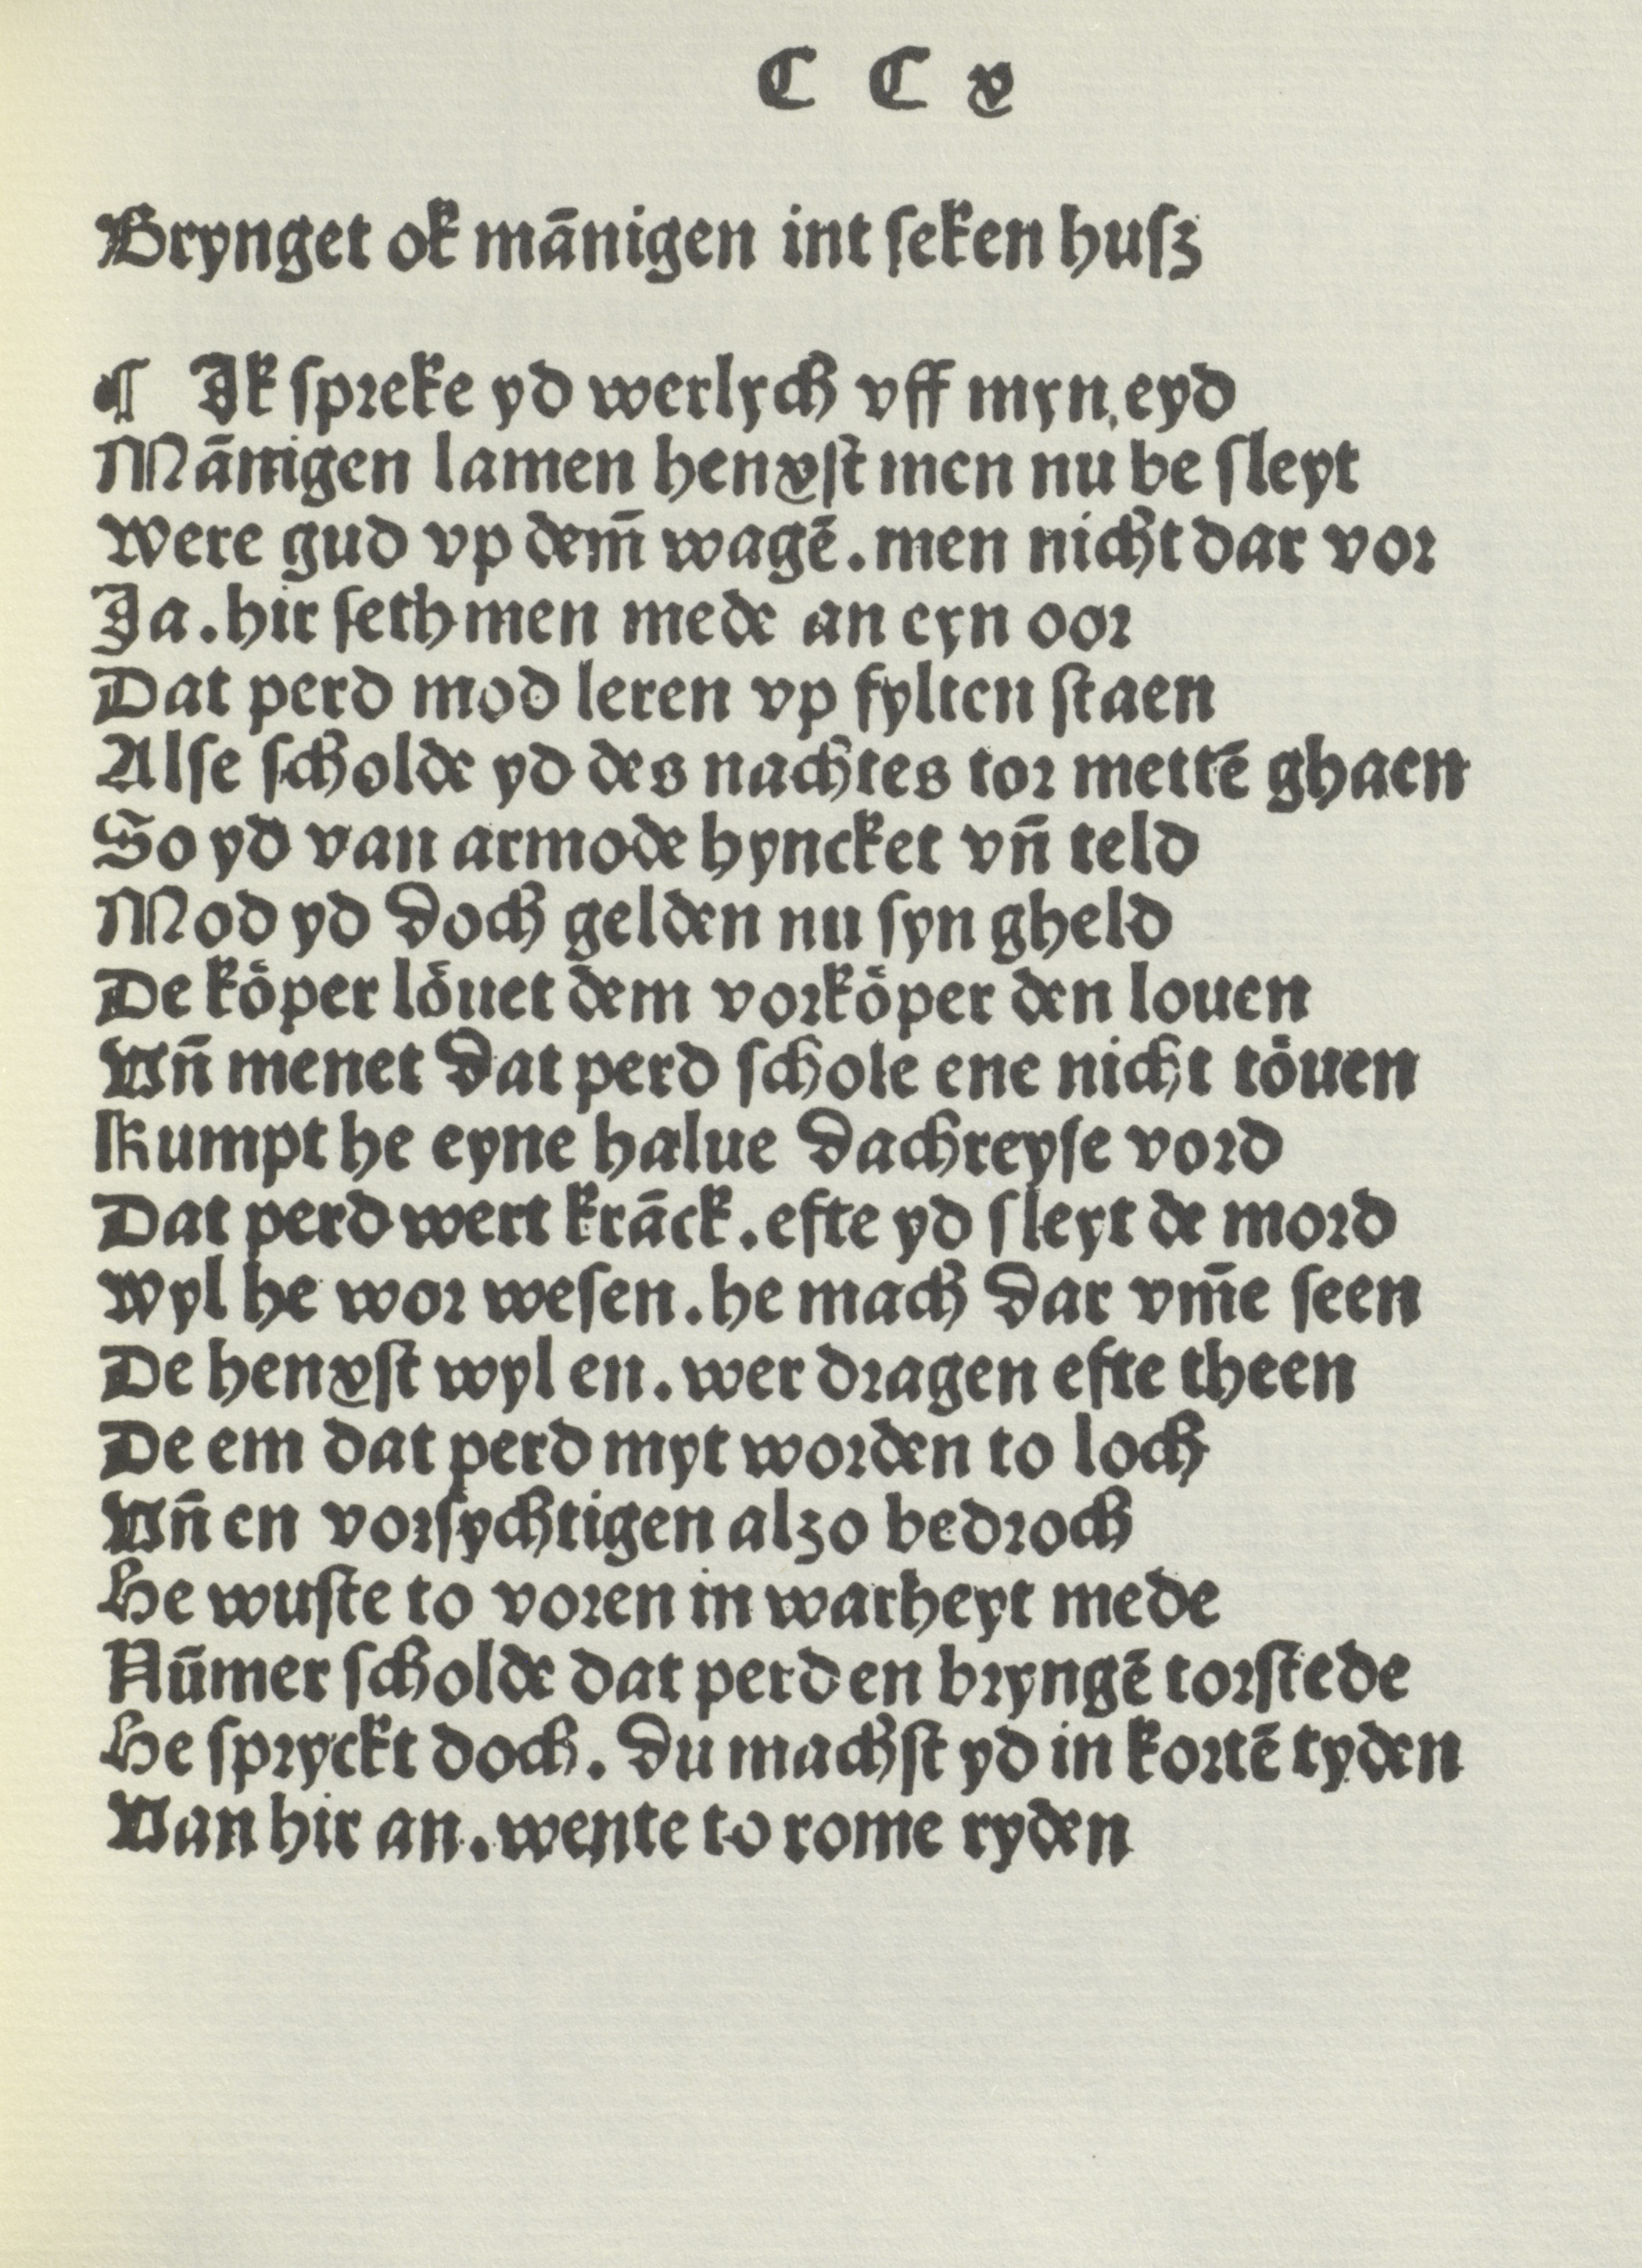 C C x
Brynget ok mānigen int ſeken huſz
¶ Ik ſpreke yd werlych vff myn eyd
Mānigen lamen henxſt men nu be ſleyt
Were gud vp dem̄ wagē. men nicht dar vor
Ja. hir ſeth men mede an eyn oor
Dat perd mod leren vp fylten ſtaen
Alſe ſcholde yd des nachtes tor mettē ghaen
So yd van armode hyncket vn̄ teld
Mod yd doch gelden nu ſyn gheld
De koͤper loͤuet dem vorkoͤper den louen
Vn̄ menet dat perd ſchole ene nicht toͤuen
Kumpt he eyne halue dachreyſe vord
Dat perd wert krāck. efte yd ſleyt de mord
Wyl he wor weſen. he mach dar vm̄e ſeen
De henxſt wyl en. wer dragen efte theen
De em dat perd myt worden to loch
Vn̄ en vorſychtigen alzo bedroch
He wuſte to voren in warheyt mede
Nūmer ſcholde dat perd en bryngē torſtede
He ſpryckt doch. du machſt yd in kortē tyden
Van hir an. wente to rome ryden